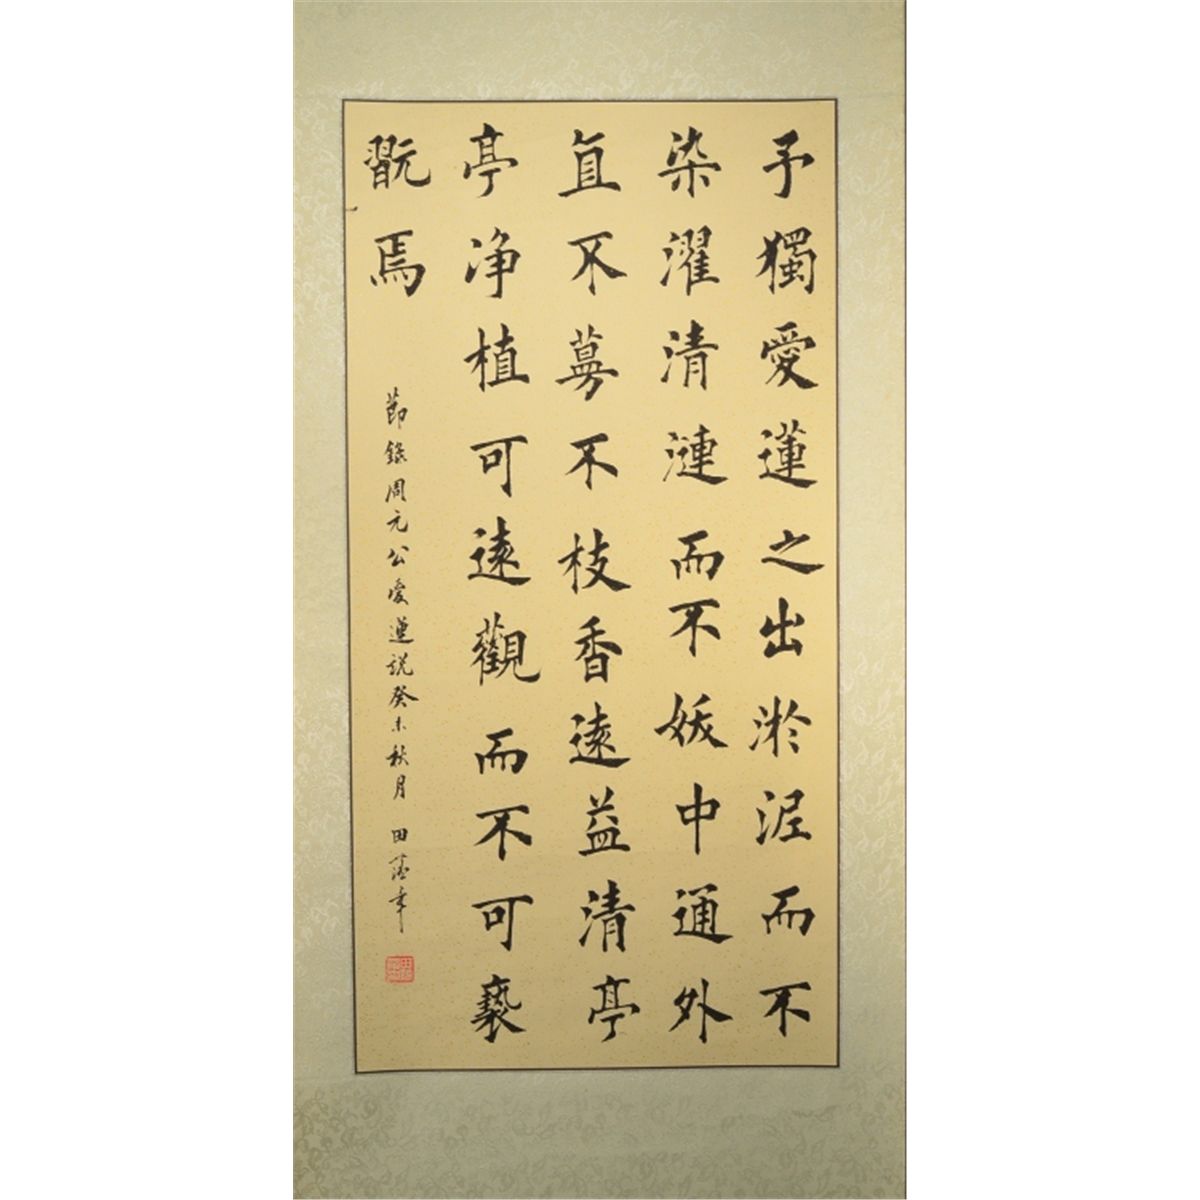 予獨愛蓮之出淤泥而不
染濯清漣而不妖中通外
直不蔓不枝香遠益清亭
亭净植可遠觀而不可褻
翫焉
節錄周元公愛蓮説癸未秋月 田